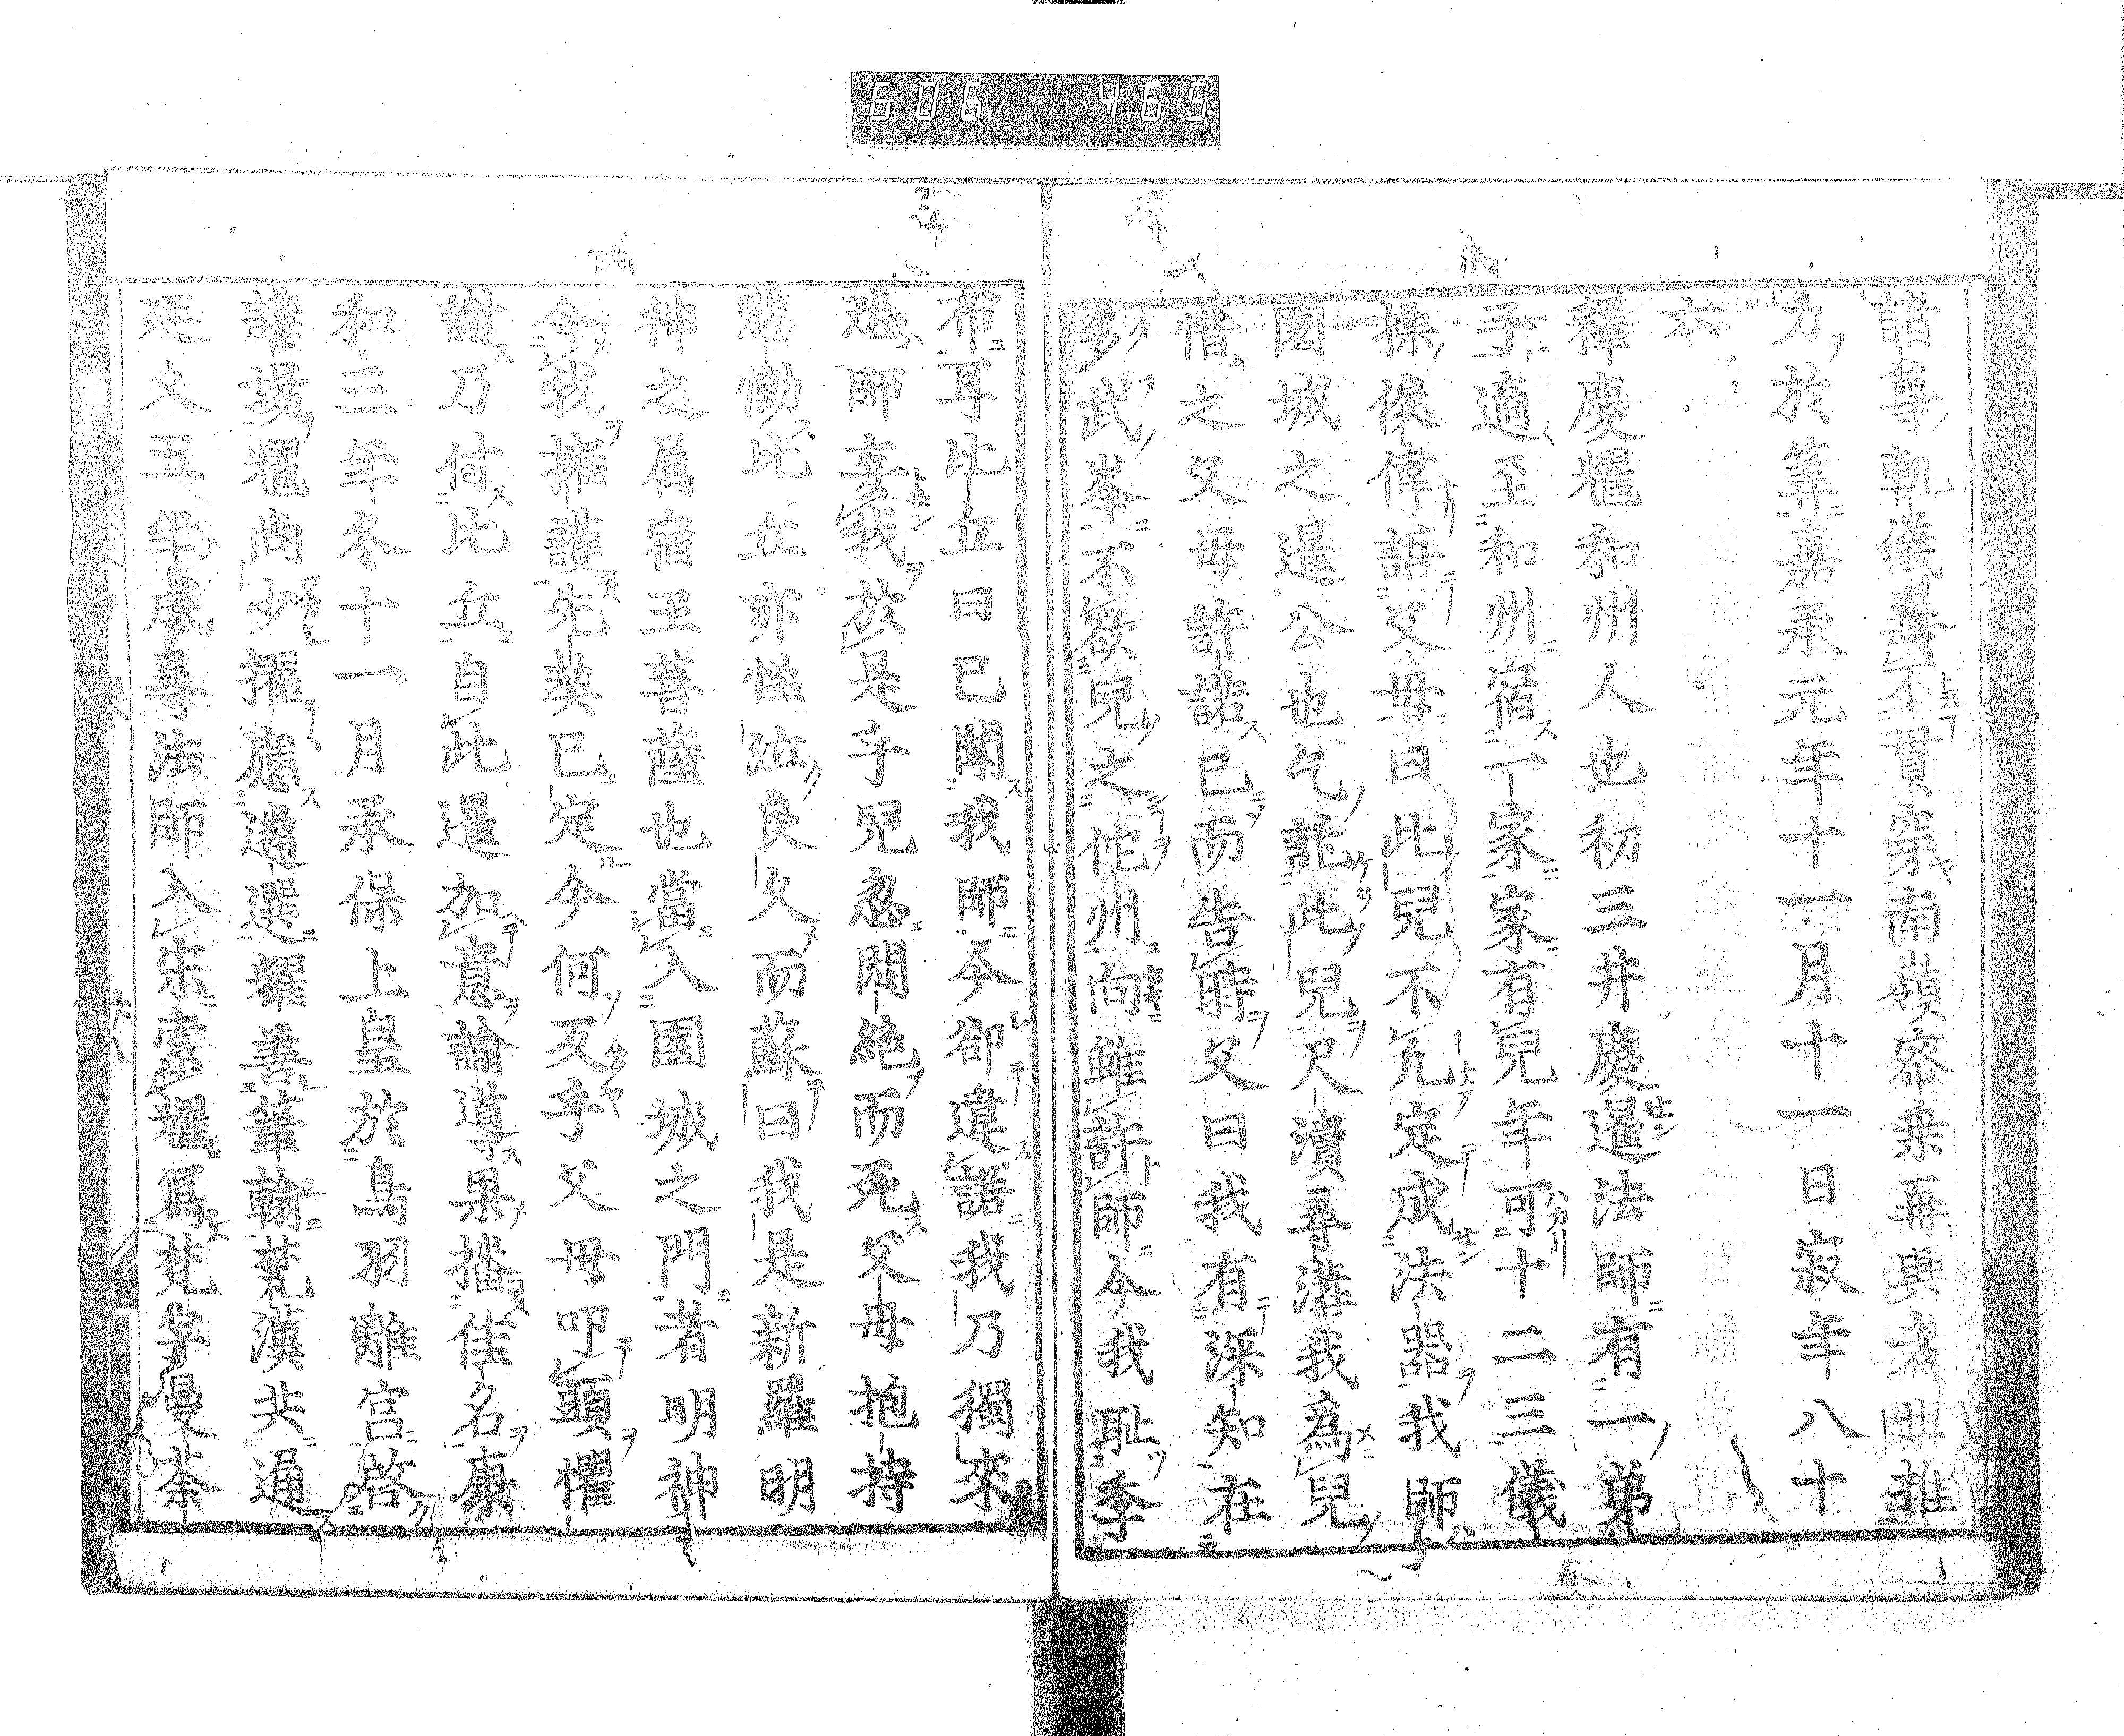 606 465
諸尊軌儀莫不貫穿南嶺密乗再興才業推
力於筭嘉承元年十一月十一日寂年八十
六
釋慶耀和州人也初三井慶暹法師有一弟
子適至和州宿一家家有兒年可十二三儀
操俊偉語父母曰此兒不凡定成法器我師
園城之暹公也乞託此兒尺瀆尋溝我爲兒
惜之父母許諾已而告時父曰我有深知在
多武峯不欲兒之佗州向雖許師今我恥季
布耳比丘曰已聞我師今卻違諾我乃獨來
恐師弃我於是乎兒忽悶絶而死父母抱持
悲慟比丘亦怪泣良久而蘇曰我是新羅明
神之属宿王菩薩也當入園城之門者明神
令我擁護先契已定今何反乎父母叩頭懼
謝乃付比丘自此暹加意諭導果播佳名康
和三年冬十一月承保上皇於鳥羽離宮啓
講塲耀尚少擢應遴選耀善筆翰梵漢共通
延久五年成尋法師入宋索耀寫梵字曼荼